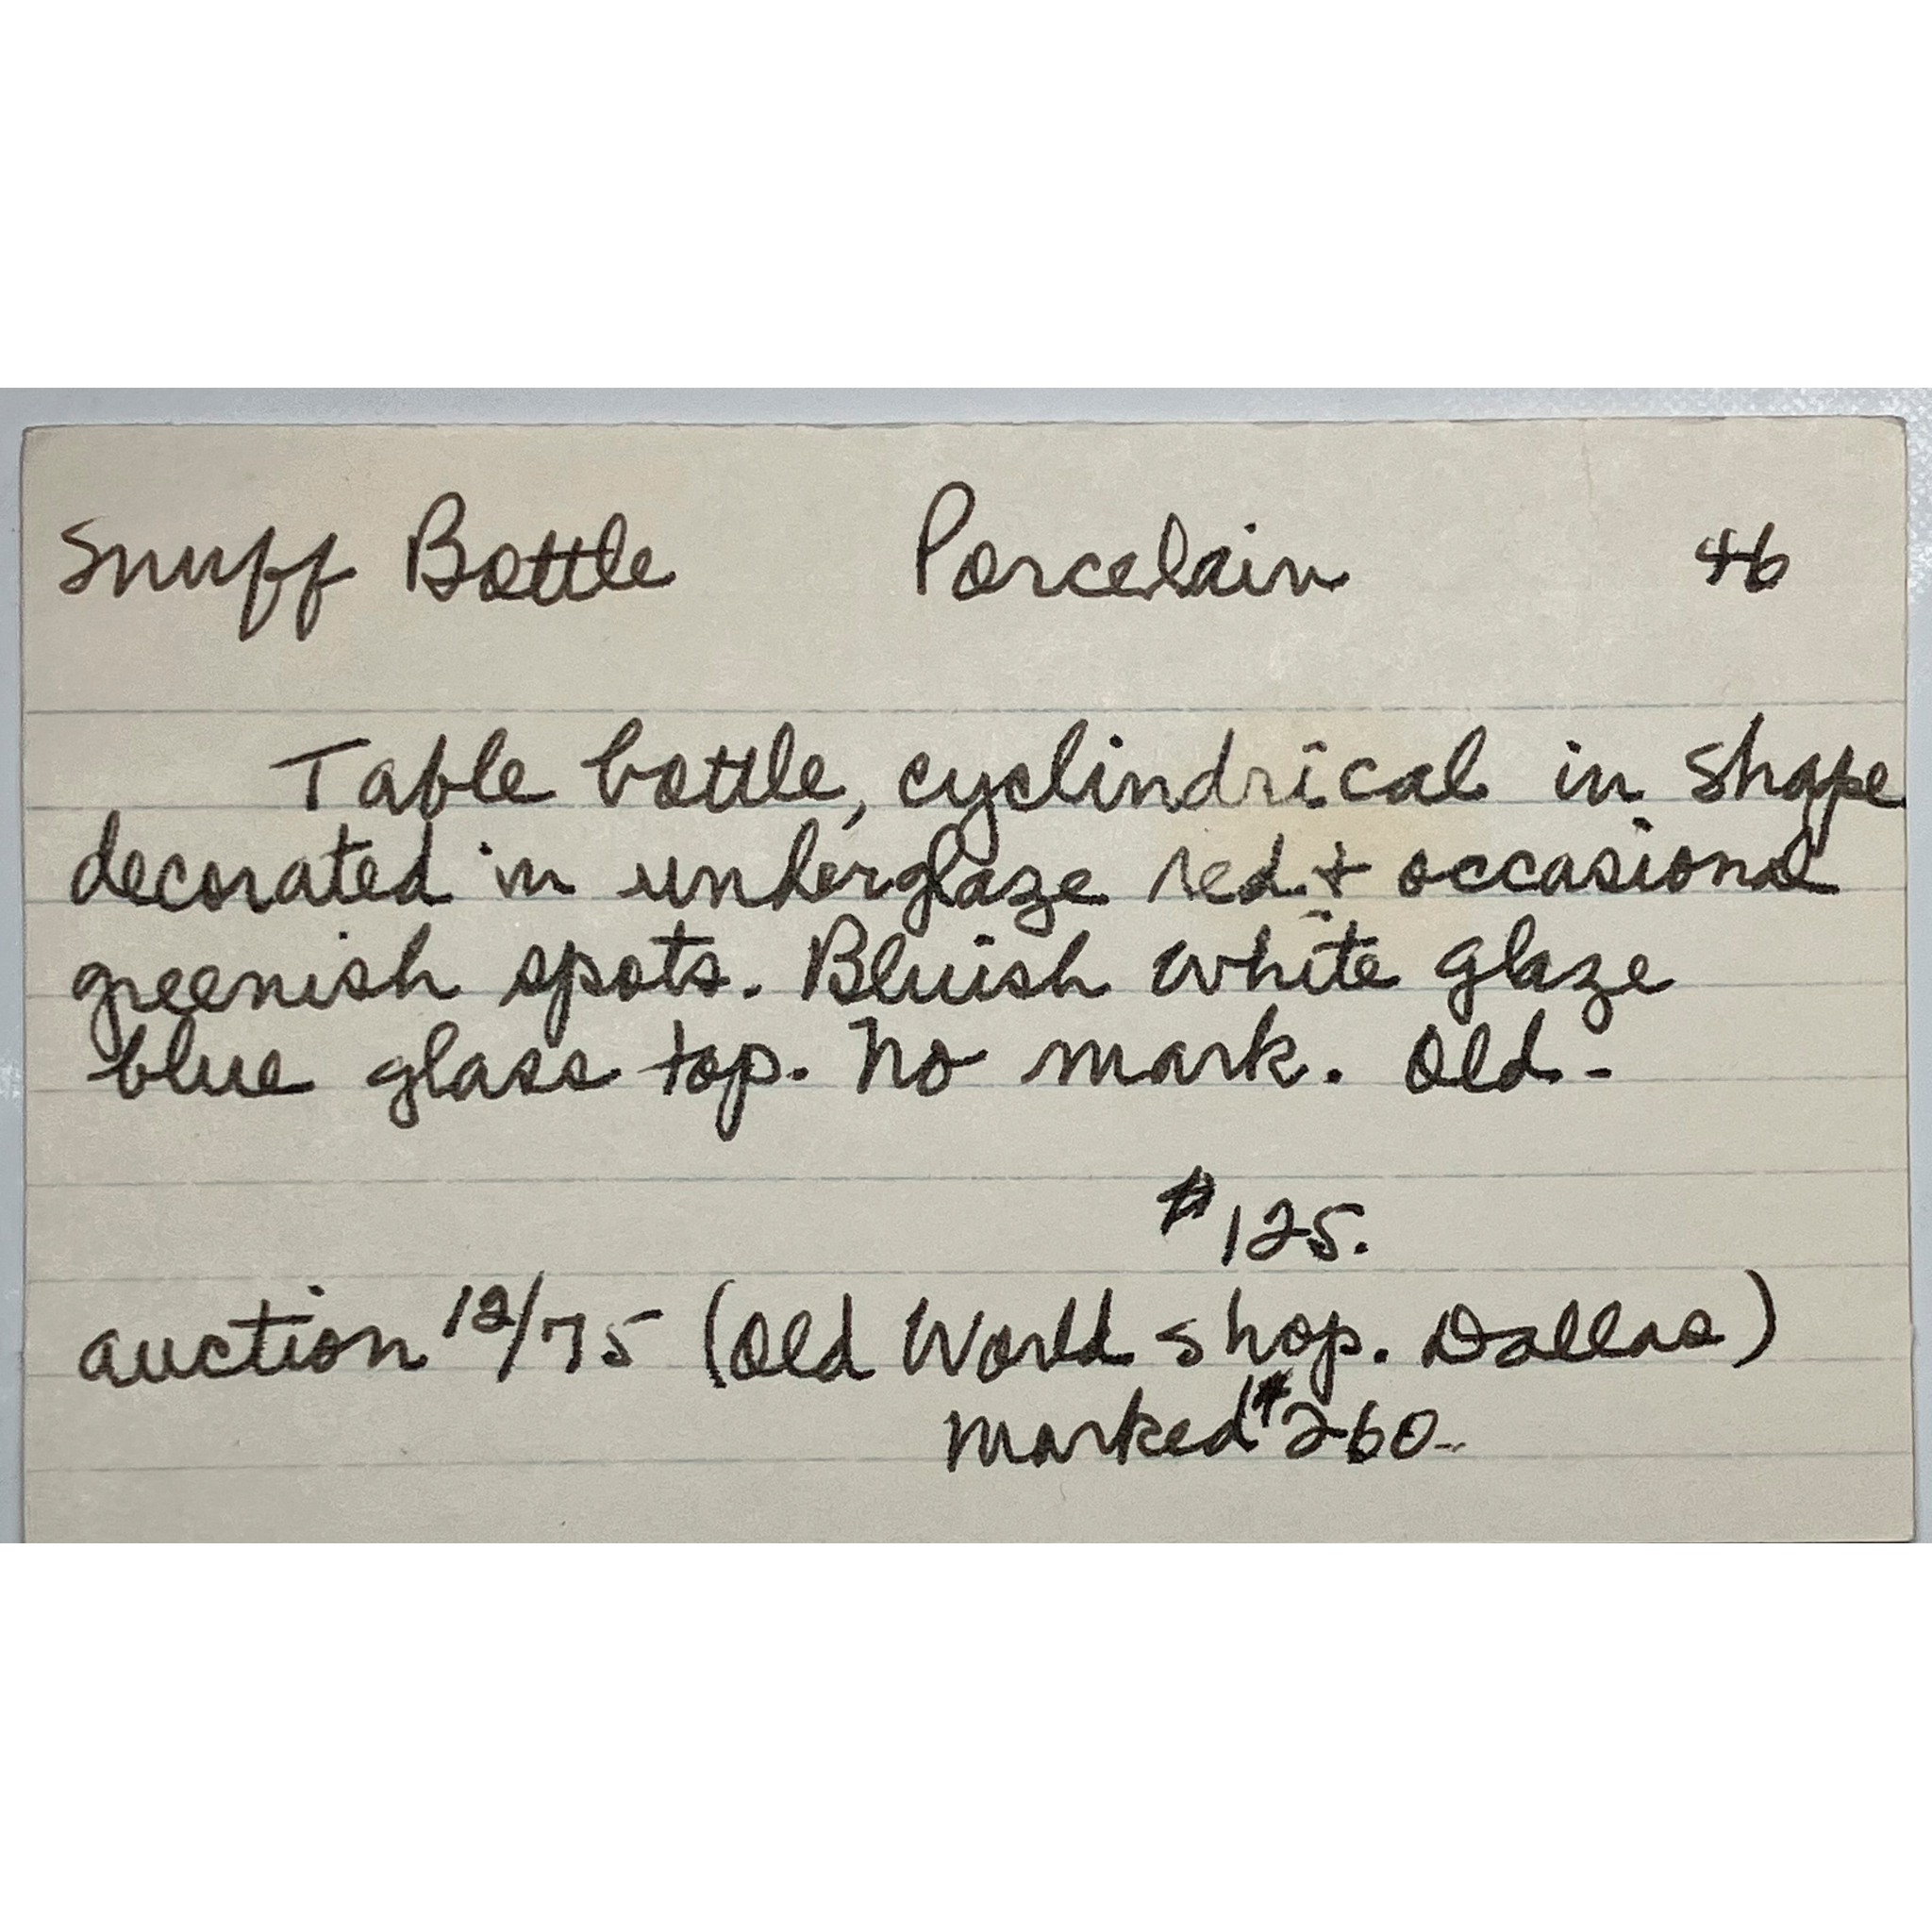 Snuff Bottle Porcelain 46
Table bottle, cyclindrical in shape
decorated in underglaze red + occasional
greenish spots. Bluish white glaze
blue glass top. No mark. Old -
$125.
auction 12/75 (Old World shop. Dallas)
marked $260-